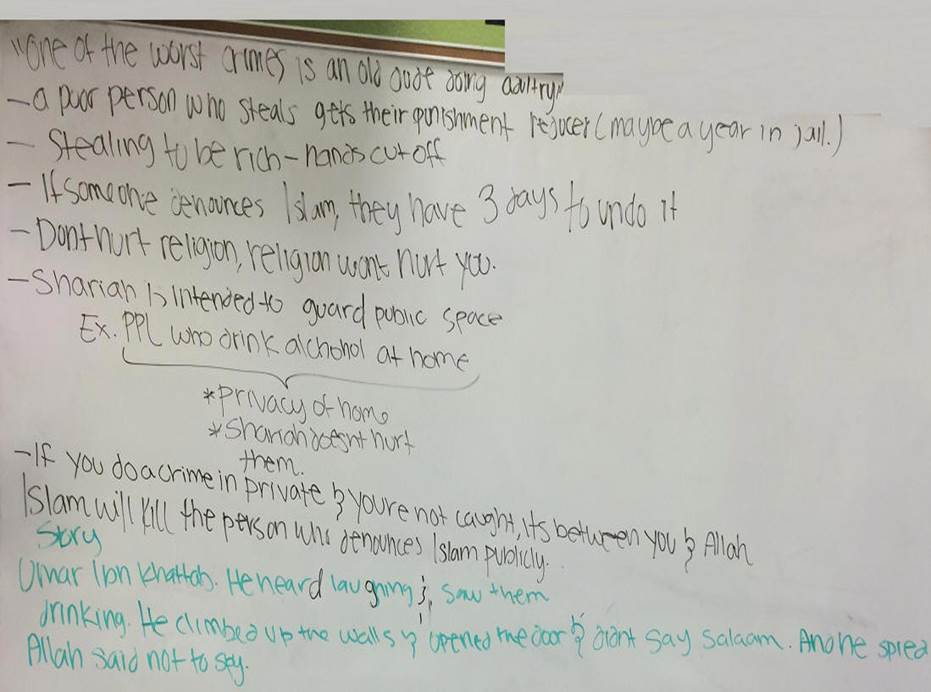 "One of the worst crimes is an old dude doing adultry"
- a poor person who steals gets their punishment reducer (maybe a year in jail.)
- Stealing to be rich - hands cut off
- If someone denounces Islam, they have 3 days to undo it
- Dont hurt religion, religion wont hurt you.
- Shariah is intended to guard public space
Ex. PPL who drink alchohol at home
* privacy of home
* Shariah doesnt hurt
them.
- If you do a crime in private & youre not caught, its between you & Allah
Islam will kill the person who denounces Islam publicly.
Story
Umar Ibn Khattab. He heard laughing & saw them
drinking. He climbed up the walls & opened the door & didnt say salaam. And he spied
Allah said not to spy.